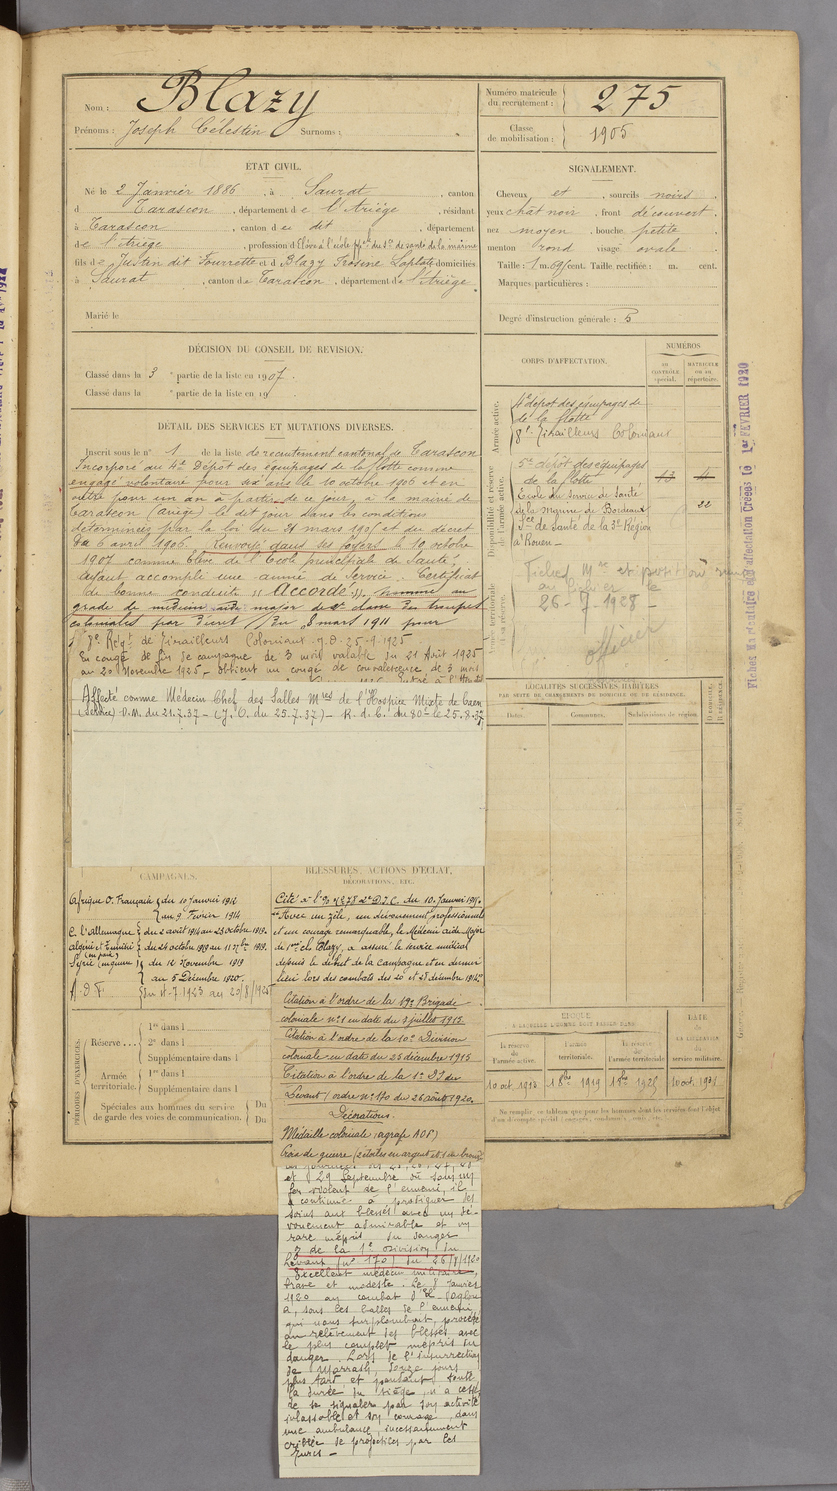 Nom : Blazy
Prénoms : Joseph Célestin Surnoms :
ETAT CIVIL.
Né le 2 Janvier 1886, à Saurat, canton
d Tarascon, département de l'Ariège, résidant
à Tarascon, canton d dit, département
de l'Ariège, profession d'Elève à l'école de santé de la marine
fils de Justin dit Fourrette et d Blazy Frosine Laplate domiciliés
à Saurat, canton de Tarascon, département de l'Ariège
Marié le
DÉCISION DU CONSEIL DE REVISION.
Classé dans la 3e partie de la liste en 1907.
Classé dans la e partie de la liste en 19
DÉTAIL DES SERVICES ET MUTATIONS DIVERSES.
Inscrit sous le n° 1 de la liste de recrutement cantonal de Tarascon
Incorporé au 4e Dépôt des équipages de la flotte comme
engagé volontaire pour six ans le 10 octobre 1906 et en
outre pour un an à partir de ce jour, à la mairie de
Tarascon (Ariège) le dit jour dans les conditions
déterminées par la loi du 21 mars 1905 et du décret
du 6 avril 1906. Renvoyé dans ses foyers le 10 octobre
1907 comme élève de l'Ecole principale de Santé
ayant accompli une année de service. Certificat
de bonne conduite "Accordé", nommé au
grade de médecin aide major de 2e classe des troupes
coloniales par Décret du 8 mars 1911 pour
Régt de Tirailleurs Coloniaux 25-9-1925
En congé de fin de campagne de 3 mois valable du 21 Août 1925
au 20 Novembre 1925 - obtient un congé de convalescence de 3 mois
Affecté comme Médecin Chef des Salles Mres de l'Hospice Mixte de Caen
(Service) D.M. du 21.7.37 - (J.O. du 25.7.37) - R. d. C. du 80 le 25.8.37
CAMPAGNES.
Afrique O. Française du 10 Janvier 1912
au 9 Février 1914
C. l'Allemagne du 2 août 1914 au 23 octobre 1919.
Algérie et Tunisie (en paix) du 24 octobre 1919 au 11 9bre 1919.
Syrie (en guerre) du 12 Novembre 1919
au 5 Décembre 1920.
A.O.F. du 11-7 1923 au 20/8/1925
BLESSURES, ACTIONS D'ÉCLAT,
DÉCORATIONS, ETC.
Cité à l'O. n° 278 2e D.I.C. du 10 Janvier 1915.
"Avec un zèle, un dévouement professionnels
et un courage remarquable, le Médecin aide Major
de 1ère cl. Blazy, a assuré le service médical
depuis le début de la campagne et en dernier
lieu lors des combats des 20 et 28 décembre 1914"
Citation à l'ordre de la 19e Brigade
coloniale n°1 en date du 3 juillet 1915
Citation à l'ordre de la 10e Division
coloniale en date du 25 décembre 1915
Citation à l'ordre de la 1e DI du
Levant (ordre n° 170 du 26 août 1920.
Décorations.
Médaille coloniale (agrafe AOF)
Croix de guerre (2 étoiles en argent et 1 de bronze
et 29 Septembre où sous un
feu violent de l'ennemi, il
a continué à prodiguer des
soins aux blessés avec un dé-
vouement admirable et un
rare mépris du danger
de la 1e Division du
Levant (n° 170) du 26/8/1920
Excellent médecin militaire
brave et modeste. Le 8 Janvier
1920 au combat d'El-Oglou
a, sous les balles de l'ennemi,
qui nous surplombait, procédé
au relèvement des blessés avec
le plus complet mépris du
danger. Lors de l'insurrection
de Marrash, douze jours
plus tard et pendant toute
la durée du siège, n'a cessé
de se signaler par son activité
inlassable et son courage, dans
une ambulance, incessamment
criblée de projectiles par les
Turcs -
PÉRIODES D'EXERCICES.
Réserve...
1re dans l
2e dans l
Supplémentaire dans l
Armée territoriale.
1re dans l
Supplémentaire dans l
Spéciales aux hommes du service
de garde des voies de communication.
Du
Du
Numéro matricule
du recrutement : 275
Classe
de mobilisation : 1905
SIGNALEMENT.
Cheveux et, sourcils noirs,
yeux chât noir, front découvert,
nez moyen, bouche petite,
menton rond visage ovale.
Taille : 1 m. 69 cent. Taille rectifiée : m. cent.
Marques particulières :
Degré d'instruction générale : 5
CORPS D'AFFECTATION.
NUMÉROS
AU CONTRÔLE spécial.
MATRICULE OU AU répertoire.
Armée active.
4e dépôt des équipages de
de la flotte
8e Tirailleurs Coloniaux
Disponibilité et réserve de l'armée active.
5e dépôt des équipages
de la flotte 13 4
Ecole du Service de Santé
de la Marine de Bordeaux 22
de Santé de la 3e Région
à Rouen
Fiches Mre et position
26-7-1928 -
officier
LOCALITÉS SUCCESSIVES HABITÉES
PAR SUITE DE CHANGEMENTS DE DOMICILE OU DE RÉSIDENCE.
Dates.
Communes.
Subdivisions de région.
D DOMICILE.
R RÉSIDENCE.
ÉPOQUE
À LAQUELLE L'HOMME DOIT PASSER DANS
DATE
DE LA LIBÉRATION
du service militaire.
la réserve
de
l'armée active.
l'armée
territoriale.
la réserve
de
l'armée territoriale
10 oct. 1913
1925
10 oct. 1931
Ne remplir ce tableau que pour les hommes dont les services font l'objet
Fiches Matriculaire et d'affectation Créées le 1er FEVRIER 1920